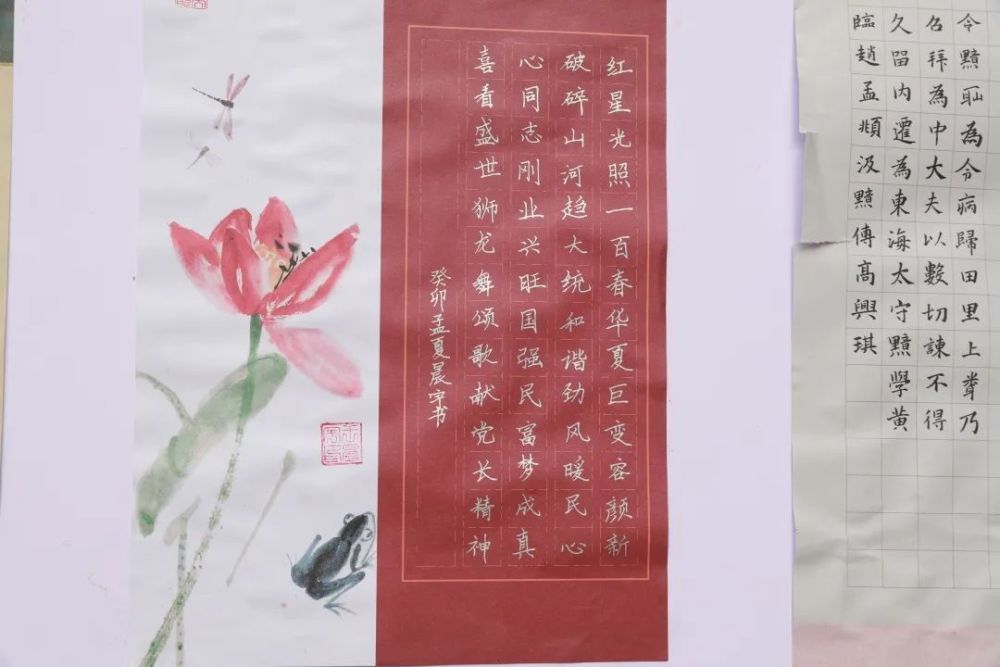 红星光照一百春华夏巨变容颜新
破碎山河趋大统和谐劲风暖民心
心同志刚业兴旺国强民富梦成真
喜看盛世狮龙舞颂歌献党长精神
癸卯孟夏晨宇书
令黯耻為令病歸田里上聞乃
召拜為中大夫以數切諫不得
久留内遷為東海太守黯學黄
臨趙孟頫汲黯傳高興琪